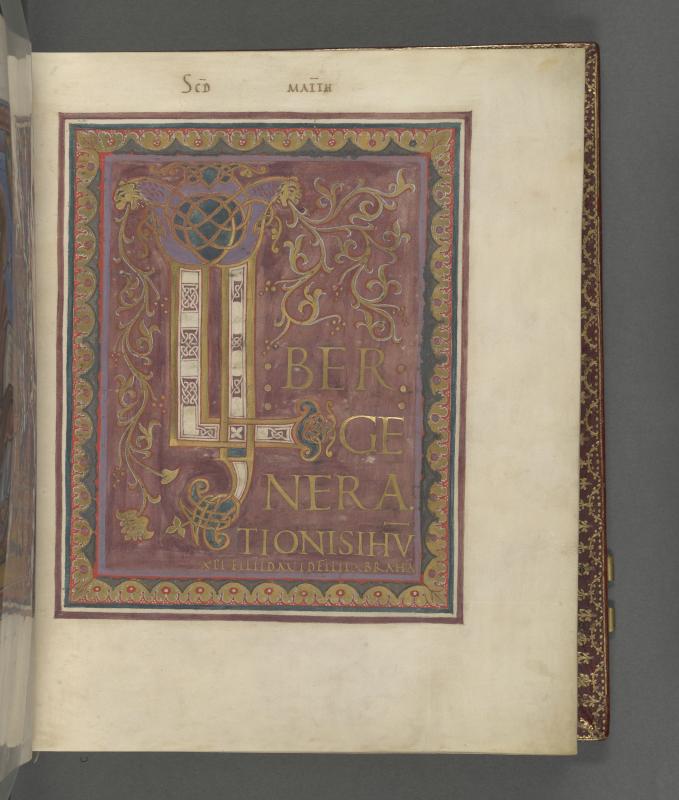 SCD MATTH
LI
BER
GE
NERA
TIONISIHV
XPI FILII DAVID FILII ABRAHA